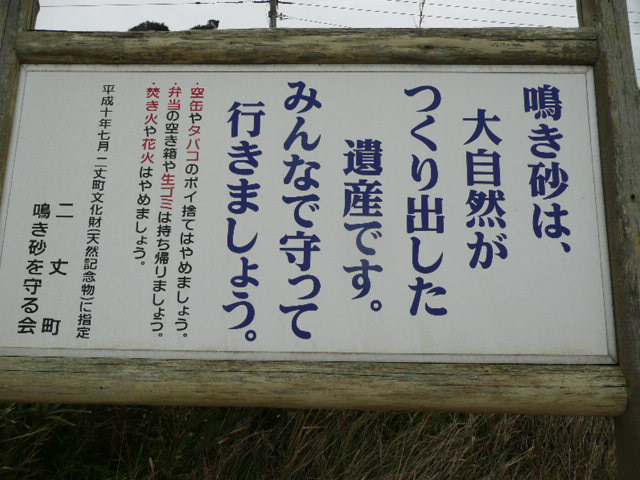 鳴き砂は、
大自然が
つくり出した
遺産です。
みんなで守って
行きましょう。
・空缶やタバコのポイ捨てはやめましょう。
・弁当の空き箱や生ゴミは持ち帰りましょう。
・焚き火や花火はやめましょう。
平成十年七月 二丈町文化財(天然記念物)に指定
二丈町
鳴き砂を守る会